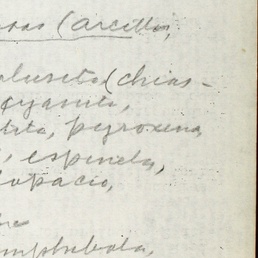 osas (arcilla,
alusita (chias-
cyanita,
tita, pyroxena
, espinela,
topacio,
amphibola,